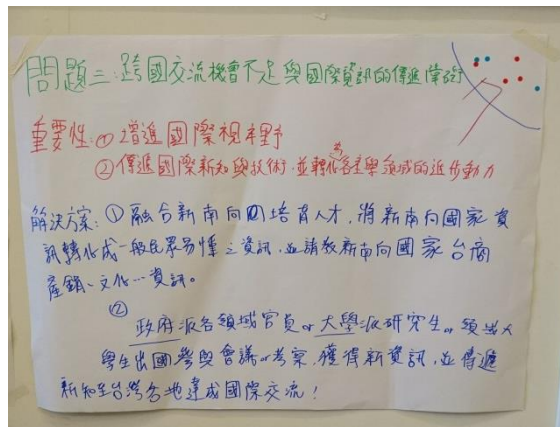 問題三:跨國交流機會不足與國際資訊的傳遞
重要性:①增進國際視野
②傳遞國際新知與技術,並轉化為各主學領域的進步動力
解決方案:①融合新南向培育人才,將新南向國家資
訊轉化成一般民眾易懂之資訊,並請教新南向國家台商
產銷、文化…資訊。
②政府派各領域官員or大學派研究生or領出大
學生出國參與會議or考察,獲得新資訊,並傳遞
新知至台灣各地達成國際交流!